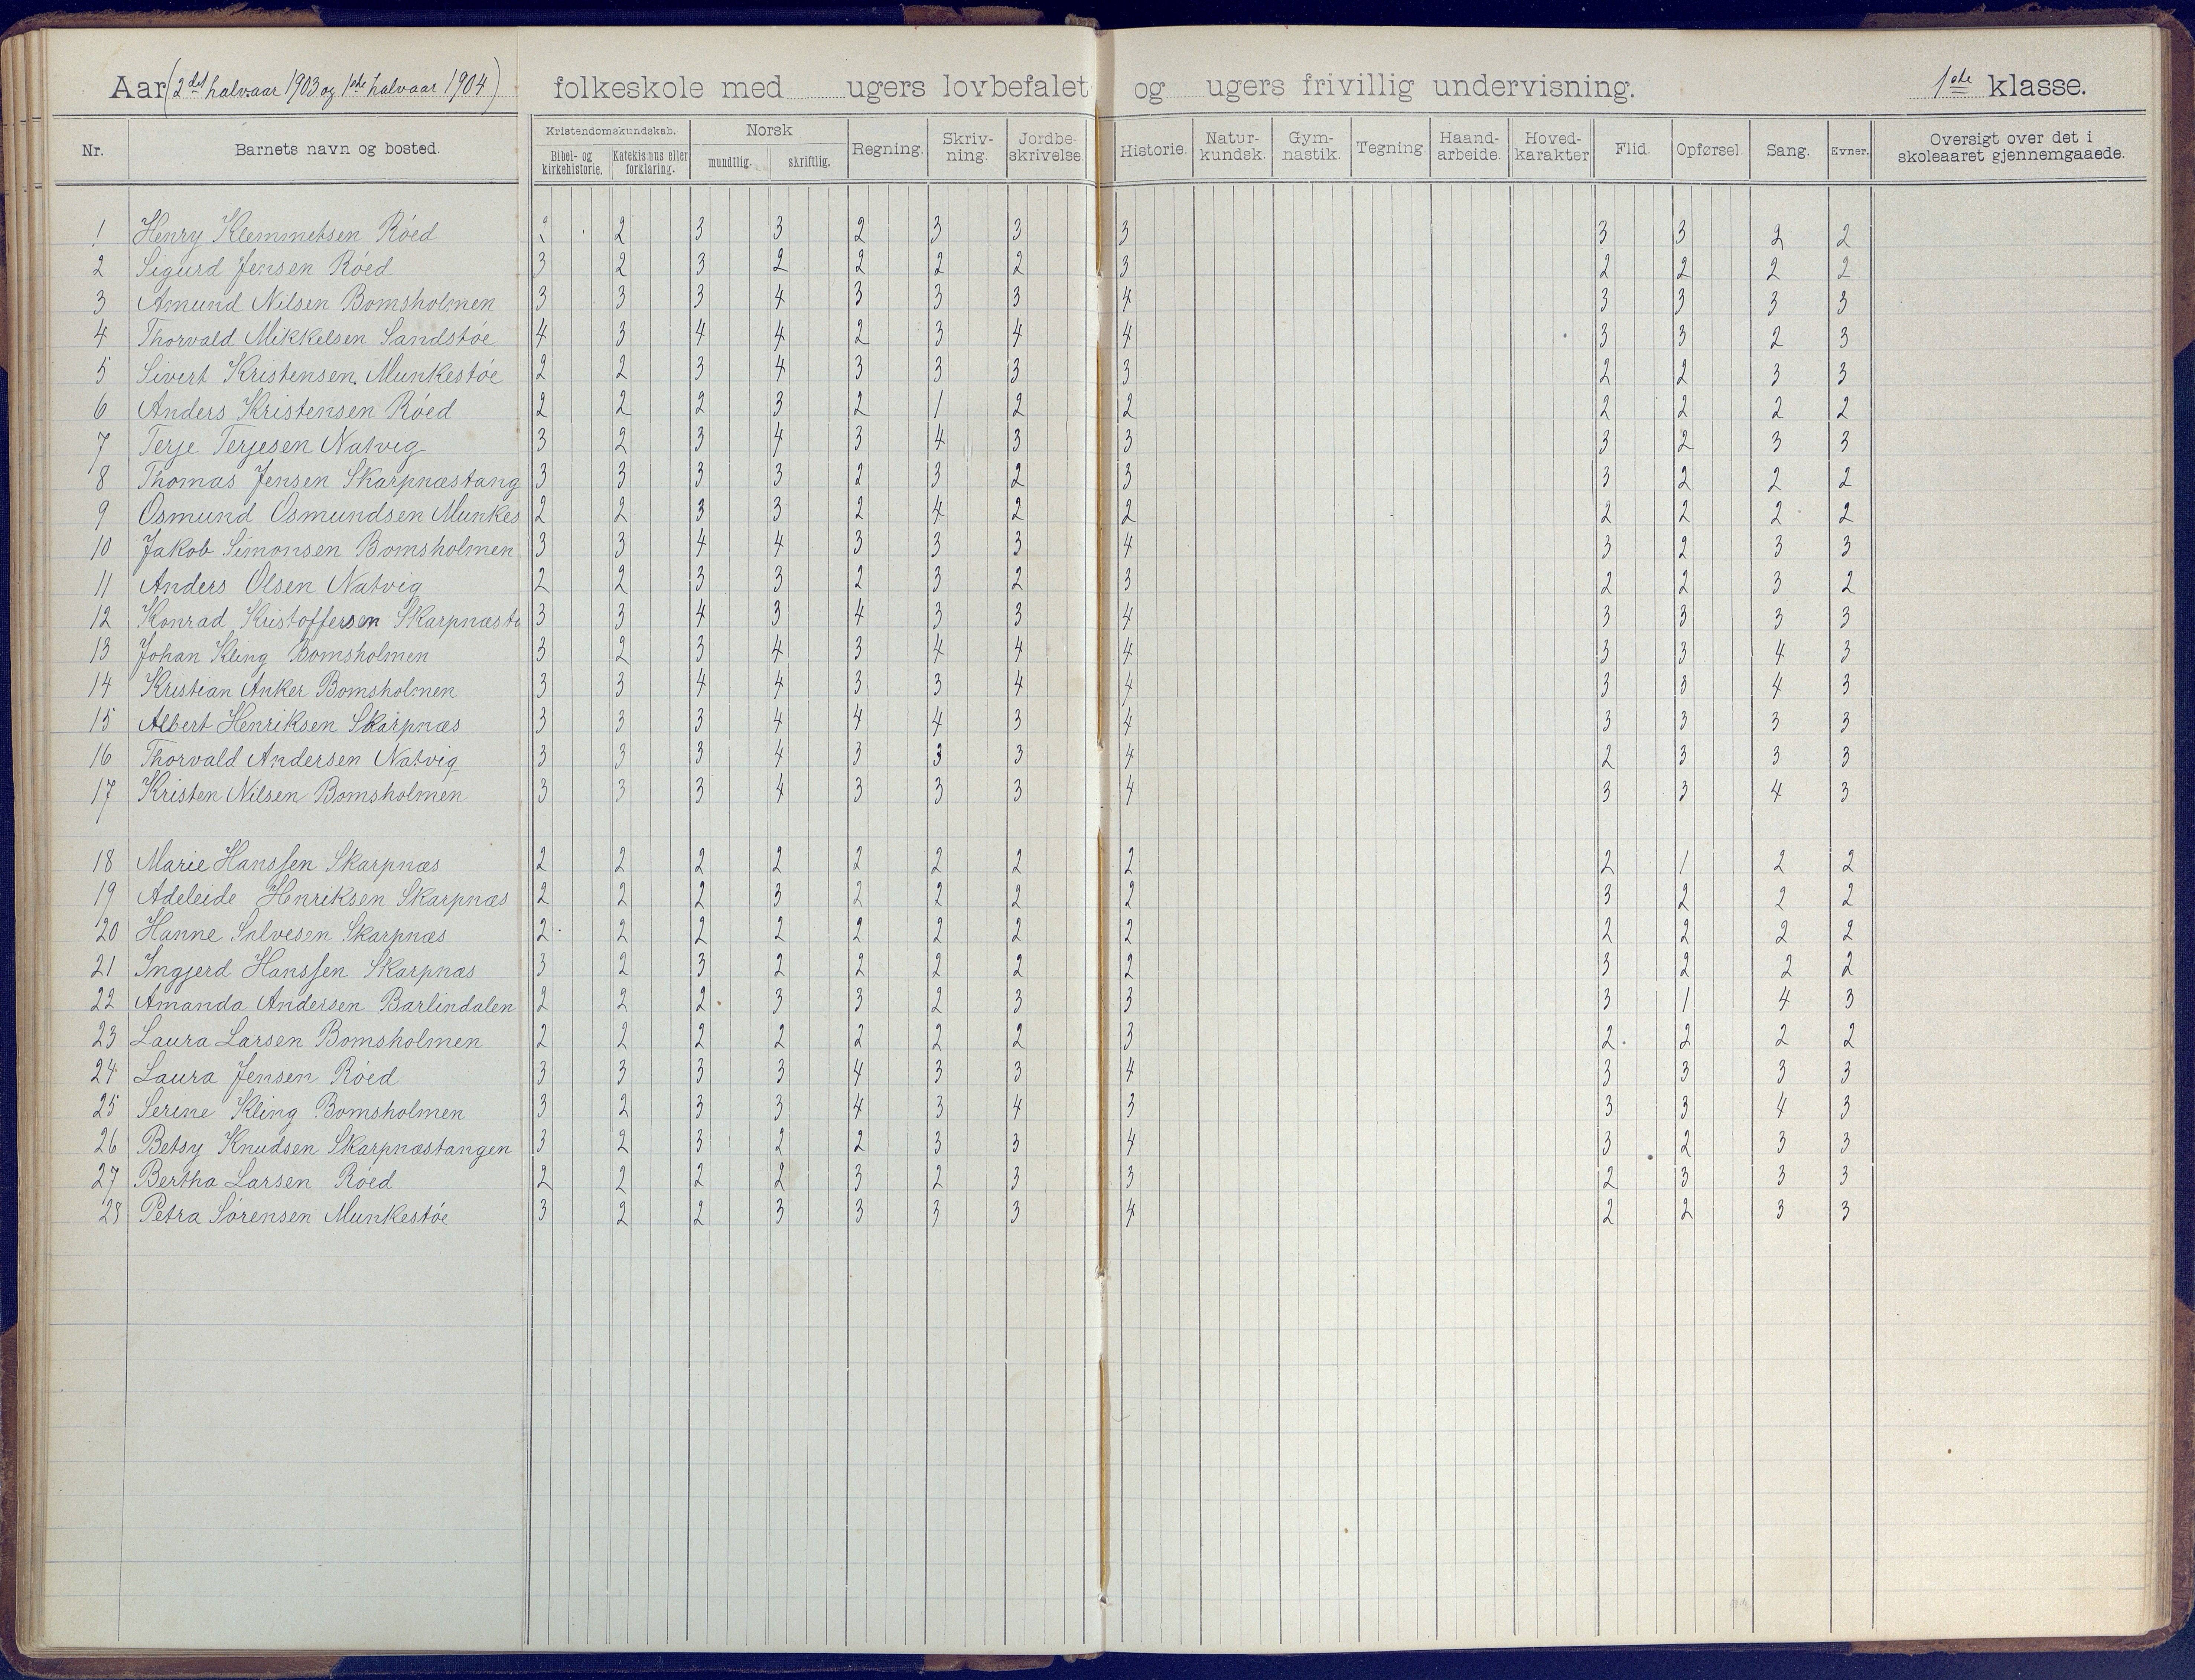 Aar (2det halvaar 1903 og 1ste halvaar 1904) folkeskole med ugers lovbefalet og ugers frivillig undervisning. 1ste klasse.
Nr. Barnets navn og bosted. Kristendomskundskab. Bibel- og kirkehistorie. Katekismus eller forklaring. Norsk mundtlig. skriftlig. Regning. Skriv-ning. Jordbe-skrivelse. Historie. Natur-kundsk. Gym-nastik. Tegning. Haand-arbeide. Hoved-karakter Flid. Opførsel. Sang. Evner. Oversigt over det i skoleaaret gjennemgaaede.
1 Henry Klemmetsen Róed 2 3 3 2 3 3 3 3 3 2 2
2 Sigurd Jensen Róed 3 2 3 2 2 2 2 3 2 2 2 2
3 Amund Nilsen Bomsholmen 3 3 3 4 3 3 3 4 3 3 3 3
4 Thorvald Mikkelsen Sandstóe 4 3 4 4 2 3 4 4 3 3 2 3
5 Sivert Kristensen. Munkestóe 2 2 3 4 3 3 3 3 2 2 3 3
6 Anders Kristensen Róed 2 2 2 3 2 1 2 2 2 2 2 2
7 Terje Terjesen Natvig 3 2 3 4 3 4 3 3 3 2 3 3
8 Thomas Jensen Skarpnæstang 3 3 3 3 2 3 2 3 3 2 2 2
9 Osmund Osmundsen Munkes 2 2 3 3 2 4 2 2 2 2 2 2
10 Jakob Simonsen Bomsholmen 3 3 4 4 3 3 3 4 3 2 3 3
11 Anders Olsen Natvig 2 2 3 3 2 3 2 3 2 2 3 2
12 Konrad Kristoffersen Skarpnæsta 3 3 4 3 4 3 3 4 3 3 3 3
13 Johan Kling Bomsholmen 3 2 3 4 3 4 4 4 3 3 4 3
14 Kristian Anker Bomsholmen 3 3 4 4 3 3 4 4 3 3 4 3
15 Albert Henriksen Skarpnæs 3 3 3 4 4 4 3 4 3 3 3 3
16 Thorvald Andersen Natvig 3 3 3 4 3 3 3 4 2 3 3 3
17 Kristen Nilsen Bomsholmen 3 3 3 4 3 3 3 4 3 3 4 3
18 Marie Hanssen Skarpnæs 2 2 2 2 2 2 2 2 2 1 2 2
19 Adeleide Henriksen Skarpnæs 2 2 2 3 2 2 2 2 3 2 2 2
20 Hanne Salvesen Skarpnæs 2 2 2 2 2 2 2 2 2 2 2 2
21 Ingjerd Hanssen Skarpnæs 3 2 3 2 2 2 2 2 3 2 2 2
22 Amanda Andersen Barlindalen 2 2 2 3 3 2 3 3 3 1 4 3
23 Laura Larsen Bomsholmen 2 2 2 2 2 2 2 3 2 2 2 2
24 Laura Jensen Róed 3 3 3 3 4 3 3 4 3 3 3 3
25 Serine Kling Bomsholmen 3 2 3 3 4 3 4 3 3 3 4 3
26 Betsy Knudsen Skarpnæstangen 3 2 3 2 2 3 3 4 3 2 3 3
27 Bertha Larsen Róed 2 2 2 2 3 2 3 3 2 3 3 3
28 Petra Sórensen Munkestóe 3 2 2 3 3 3 3 4 2 2 3 3